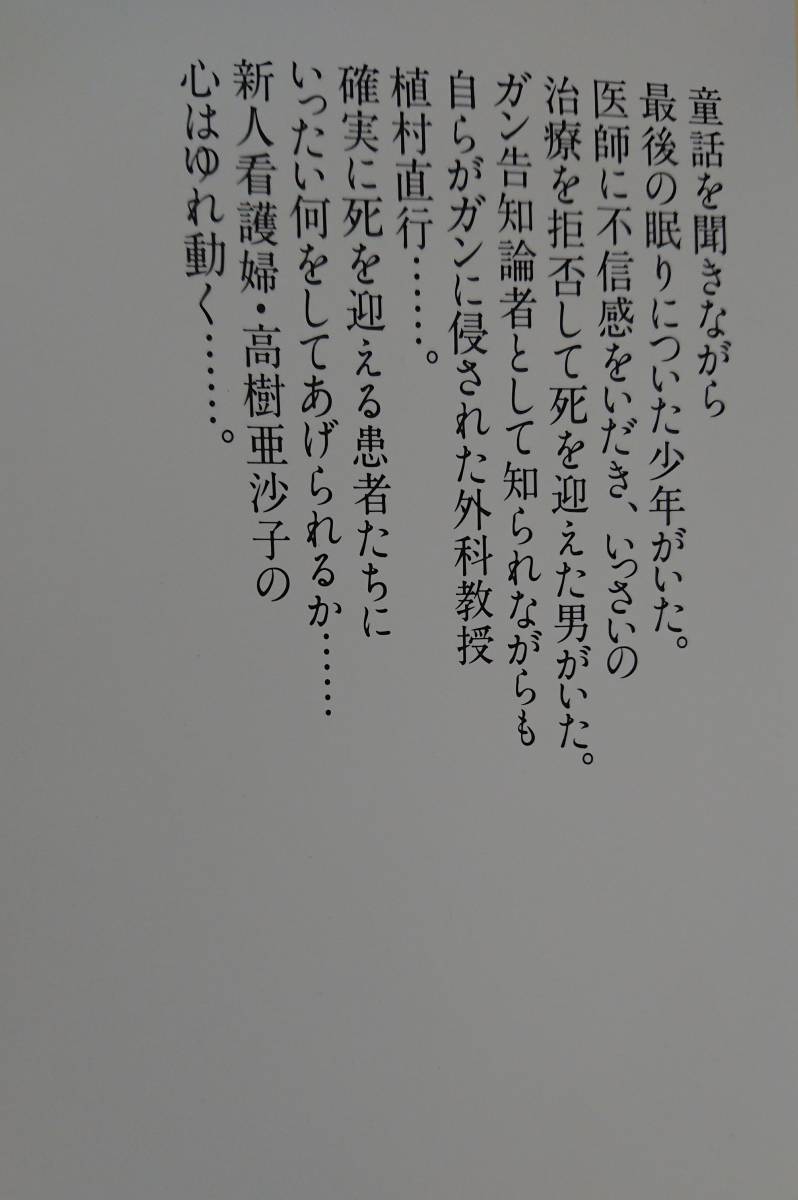 童話を聞きながら
最後の眠りについた少年がいた。
医師に不信感をいだき、いっさいの
治療を拒否して死を迎えた男がいた。
ガン告知論者として知られながらも
自らがガンに侵された外科教授
植村直行……。
確実に死を迎える患者たちに
いったい何をしてあげられるか……
新人看護婦・高樹亜沙子の
心はゆれ動く……。